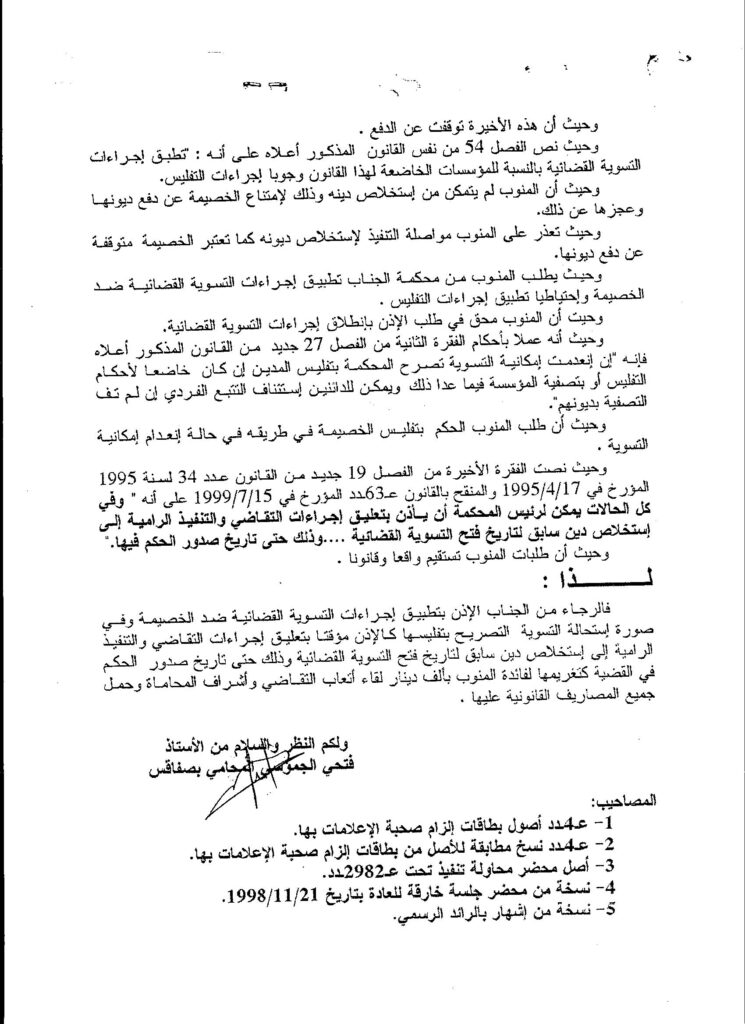 وحيث أن هذه الأخيرة توقفت عن الدفع .
وحيث نص الفصل 54 من نفس القانون المذكور أعلاه على أنه : "تطبق إجراءات
التسوية القضائية بالنسبة للمؤسسات الخاضعة لهذا القانون وجوبا إجراءات التفليس.
وحيث أن المنوب لم يتمكن من إستخلاص دينه وذلك لإمتناع الخصيمة عن دفع ديونها
وعجزها عن ذلك.
وحيث تعذر على المنوب مواصلة التنفيذ لإستخلاص ديونه كما تعتبر الخصيمة متوقفة
عن دفع ديونها.
وحيث يطلب المنوب من محكمة الجناب تطبيق إجراءات التسوية القضائية ضد
الخصيمة وإحتياطيا تطبيق إجراءات التفليس .
وحيت أن المنوب محق في طلب الإذن بإنطلاق إجراءات التسوية القضائية.
وحيث أنه عملا بأحكام الفقرة الثانية من الفصل 27 جديد من القانون المذكور أعلاه
فإنه "إن إنعدمت إمكانية التسوية تصرح المحكمة بتفليس المدين إن كان خاضعا لأحكام
التفليس أو بتصفية المؤسسة فيما عدا ذلك ويمكن للدائنين إستئناف التتبع الفردي إن لم تف
التصفية بديونهم".
وحيث أن طلب المنوب الحكم بتفليس الخصيمة في طريقه في حالة إنعدام إمكانية
التسوية .
وحيث نصت الفقرة الأخيرة من الفصل 19 جديد من القانون عدد 34 لسنة 1995
المؤرخ في 1995/4/17 والمنقح بالقانون عـ63دد المؤرخ في 1999/7/15 على أنه " وفي
كل الحالات يمكن لرئيس المحكمة أن يأذن بتعليق إجراءات التقاضي والتنفيذ الرامية إلى
إستخلاص دين سابق لتاريخ فتح التسوية القضائية ....وذلك حتى تاريخ صدور الحكم فيها."
وحيث أن طلبات المنوب تستقيم واقعا وقانونا .
لـــــذا :
فالرجاء من الجناب الإذن بتطبيق إجراءات التسوية القضائية ضد الخصيمة وفي
صورة إستحالة التسوية التصريح بتفليسها كالإذن مؤقتا بتعليق إجراءات التقاضي والتنفيذ
الرامية إلى إستخلاص دين سابق لتاريخ فتح التسوية القضائية وذلك حتى تاريخ صدور الحكم
في القضية كتغريمها لفائدة المنوب بألف دينار لقاء أتعاب التقاضي وأشراف المحاماة وحمل
جميع المصاريف القانونية عليها .
ولكم النظر والسلام من الأستاذ
فتحي الجموسي المحامي بصفاقس
المصاحيب:
1- عـ4دد أصول بطاقات إلزام صحبة الإعلامات بها.
2- عـ4دد نسخ مطابقة للأصل من بطاقات إلزام صحبة الإعلامات بها.
3- أصل محضر محاولة تنفيذ تحت عـ2982دد.
4- نسخة من محضر جلسة خارقة للعادة بتاريخ 1998/11/21.
5- نسخة من إشهار بالرائد الرسمي.